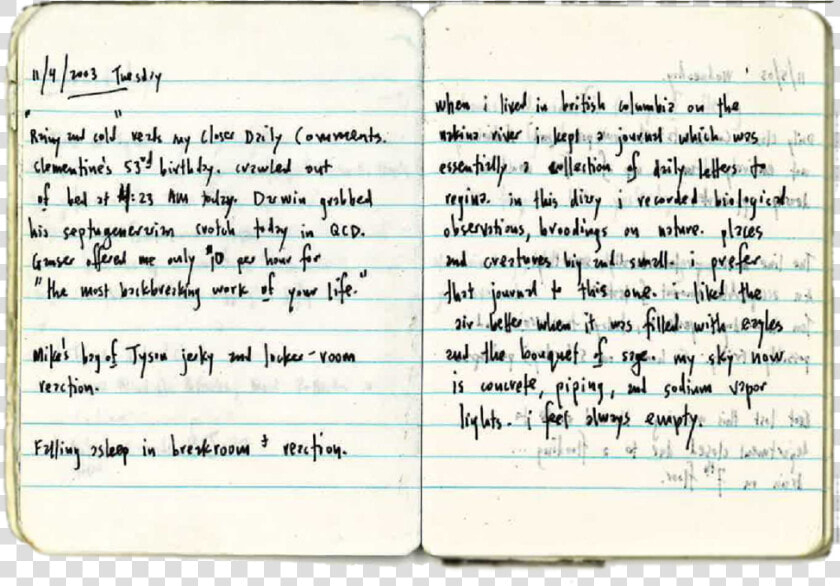 11/4/2003 Tuesday
"Rainy and cold" reads my Closer Daily Comments.
Clementine's 53rd birthday. crawled out
of bed at 4:23 AM today. Darwin grabbed
his septugenerarian crotch today in QCD.
Ganser offered me only $10 per hour for
"the most backbreaking work of your life."
Mike's bag of Tyson jerky and locker-room
reaction.
Falling asleep in breakroom & reaction.
when i lived in british columbia on the
nakina river i kept a journal which was
essentially a collection of daily letters to
regina. in this diary i recorded biological
observations, broodings on nature. places
and creatures big and small. i prefer
that journal to this one. i liked the
air better when it was filled with eagles
and the bouquet of sage. my sky now
is concrete, piping, and sodium vapor
lights. i feel always empty.